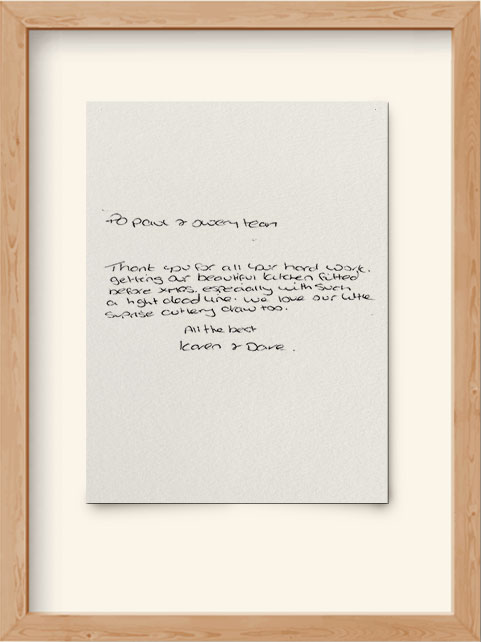 To Paul & Owery team
Thank you for all your hard work.
getting our beautiful kitchen fitted
before xmas, especially with such
a tight deadline. We love our little
suprise cutlery draw too.
All the best
Karen & Dave.